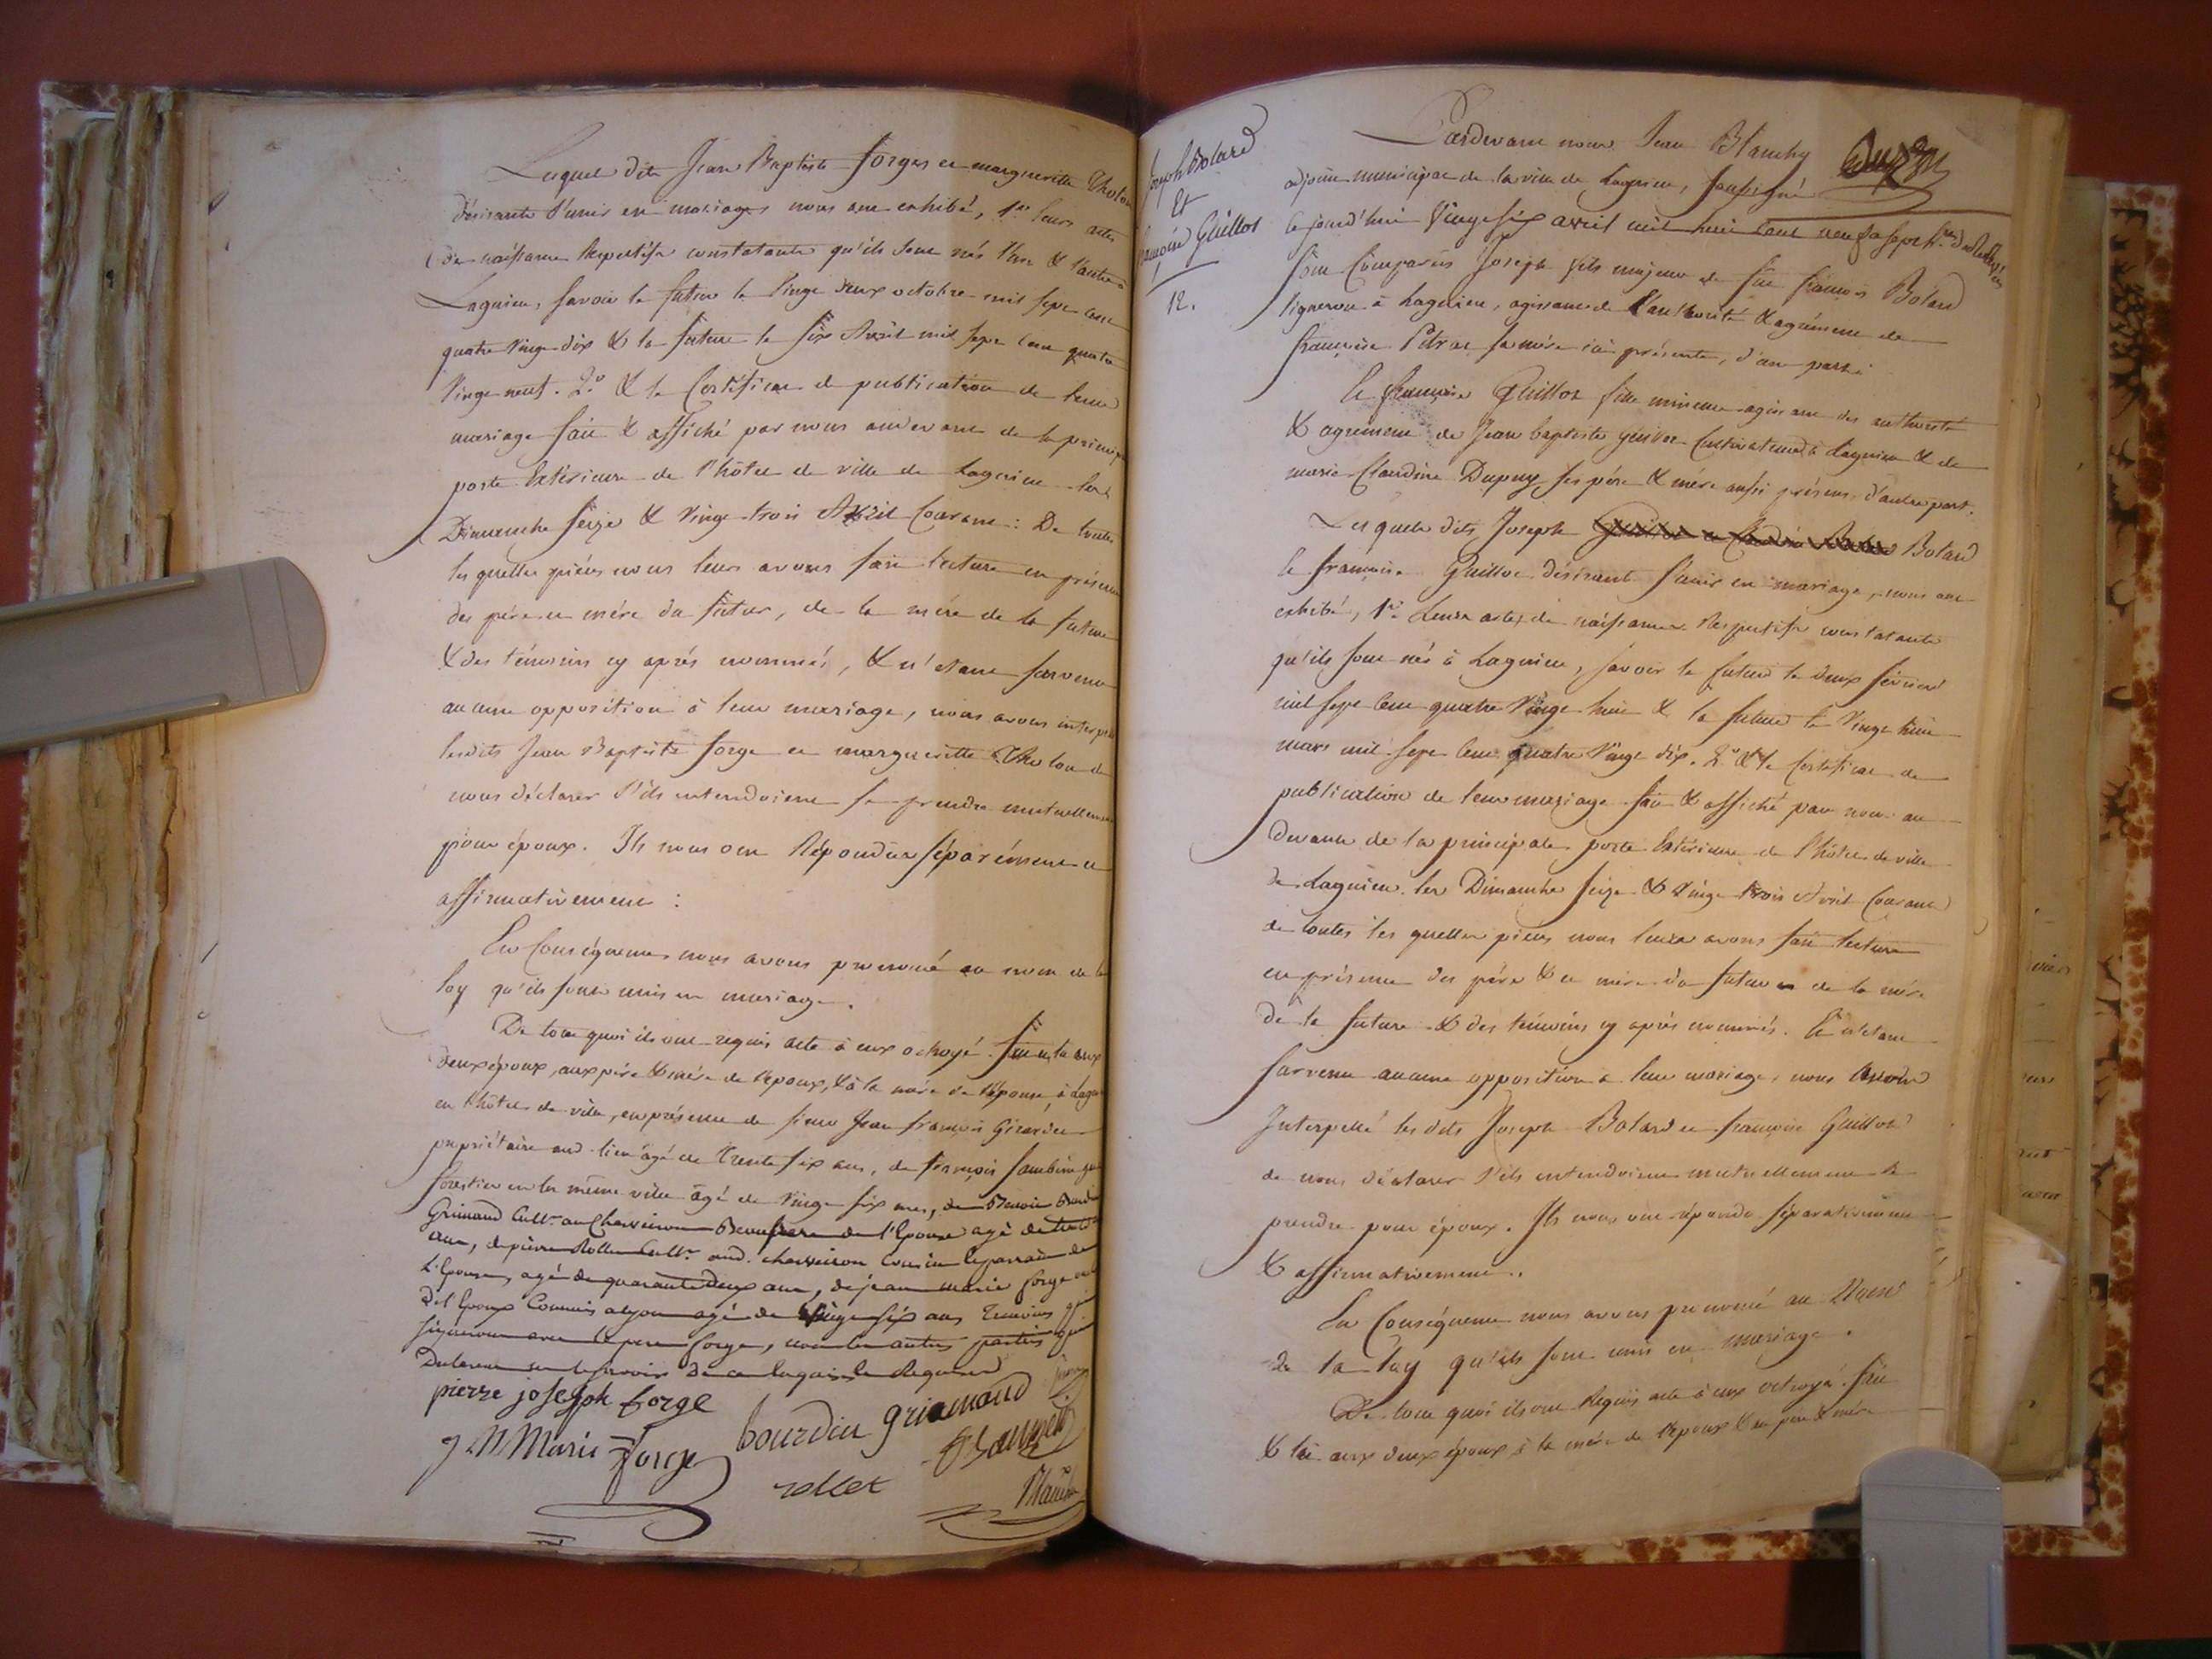 Lesquels dits Jean Baptiste forges et margueritte Tholon
désirants s'unir en mariages nous ont exhibé, 1.º leurs actes
de naissance Respectifs constatants qu'ils sont nés l'un & l'autre à
Lagnieu, savoir le futur le Vingt deux octobre mil sept cent
quatre vingt dix & la future le six Avril mil sept cent quatre
Vingt neuf. 2.º & le Certificat de publication de leur
mariage fait & affiché par nous audevant de la principale
porte Extérieure de l'hôtel de ville de Lagnieu les
Dimanche seize & Vingt trois Avril Courant : De toutes
lesquelles pièces nous leurs avons fait lecture en présence
des père et mère du futur, de la mère de la future
& des témoins cy après nommés, & n'étant survenu
aucune opposition à leur mariage, nous avons interpellé
lesdits Jean Baptiste forge et margueritte Tholon de
nous déclarer s'ils entendoient se prendre mutuellement
pour époux. Ils nous ont Répondus séparément et
affirmativement :
En Conséquence nous avons prononcé au nom de la
loy qu'ils sont unis en mariage.
De tout quoi ils ont requis acte à eux octroyé. fait & lu aux
deux époux, aux père & mère de l'époux, & à la mère de l'épouse, à Lagnieu
en l'hôtel de ville, en présence de sieur Jean françois Girardet
propriétaire aud. lieu âgé de trente six ans, de françois
forestier en la même ville âgé de Vingt six ans, de Benoit Bourdin
Grimaud Cultr. au Charveiron Beaufrere de l'Epouse agé de trente
ans, de pierre Rollet Cultr. aud. charveiron Cousin
L'Epouse, agé de quarante deux ans, de jean marie forge
de l'Epoux Commis a lyon agé de Vingt six ans Temoins qui
signeront avec le pere forge, non les autres parties qui
Declarent ne le savoir de ce enquis et Requises
pierre joseph forge
J M Marie Forge bourdin griemaud
rollet
Blanchy
Joseph Bolard
Et
françoise Guillot
12.
Pardevant nous Jean Blanchy
adjoint municipal de la ville de Lagnieu, soussigné
Cejourd'hui Vingt six avril mil huit cent neuf a sept hres
sont Comparus Joseph fils majeur de feu françois Bolard
Vigneron à Lagnieu, agissant de l'authorité & agrément de
françoise sa mère ici présente, d'une part
Et françoise Guillot fille mineure agissant des authorité
& agrément de Jean baptiste Guillot Cultivateur à Lagnieu & de
marie Claudine Dupuy ses père & mère aussi présens, d'autre part.
Lesquels dits Joseph Bolard
Et françoise Guillot désirants s'unir en mariage, nous ont
exhibé, 1.º Leurs actes de naissance Respectifs constatants
qu'ils sont nés à Lagnieu, savoir le futur le deux février
mil sept cent quatre Vingt huit & la future le Vingt huit
mars mil sept cent quatre Vingt dix. 2.º & le Certificat de
publication de leur mariage fait & affiché par nous au
devant de la principale porte Extérieure de l'hôtel de ville
de Lagnieu les Dimanche seize & Vingt trois Avril Courant
de toutes lesquelles pièces nous leurs avons fait lecture
en présence des père & et mère du futur de la mère
de la future & des témoins cy après nommés. Et n'étant
survenu aucune opposition à leur mariage, nous avons
Interpellé lesdits Joseph Bolard et françoise Guillot
de nous déclarer s'ils entendoient mutuellement se
prendre pour époux. Ils nous ont répondu séparativement
& affirmativement.
En Conséquence nous avons prononcé au Nom
de la loy qu'ils sont unis en mariage.
De tout quoi ils ont Requis acte à eux octroyé. fait
& lu aux deux époux, à la mère de l'époux & au père & mère